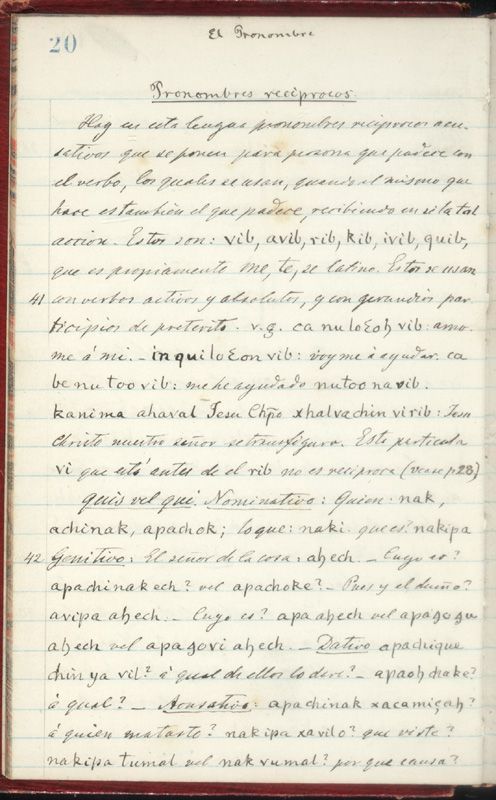 20
El Pronombre
Pronombres reciprocos.
Hay en esta lengua pronombres reciprocos acu-
sativos que se ponen para persona que padece con
el verbo, los quales se usan, quando el mismo que
hace es también el que padece, recibiendo en sí la tal
accion. Estos son: vib, avib, rib, kib, ivib, quib,
que es propiamente me, te, se latino. Estos se usan
41 con verbos activos y absolutos, y con gerundios par-
ticipios de preterito. v.g. ca nuloƐoh vib: amo
me á mi. – inquiloƐon vib: voy me á ayudar. ca
be nu too vib: me he ayudado nutoo na vib.
kanima ahaval Jesu Chp̃o xhalvachin vi rib: Jesu
Christo nuestro señor se transfiguro. Esta particula
vi que está antes de el rib no es reciproca (vease p 28)
quis vel qui. Nominativo: Quien: nak,
achinak, apachok; lo que: naki. que es? nakipa
42 Genitivo: El señor de la cosa: aḩech. – Cuyo es?
apachinak ech? vel apachoke? – Pues y el dueño?
avipa aḩech. – Cuyo es? apa aḩech vel
aḩech vel aḩech. – Dativo apachique
chin ya vil? á qual de ellos lo dere? – apaoh chake?
á qual? – Acusativo: apachinak xacamiçaḩ?
á quien mataste? nakipa xavilo? que viste?
nakipa tumal vel nak rumal? por que causa?